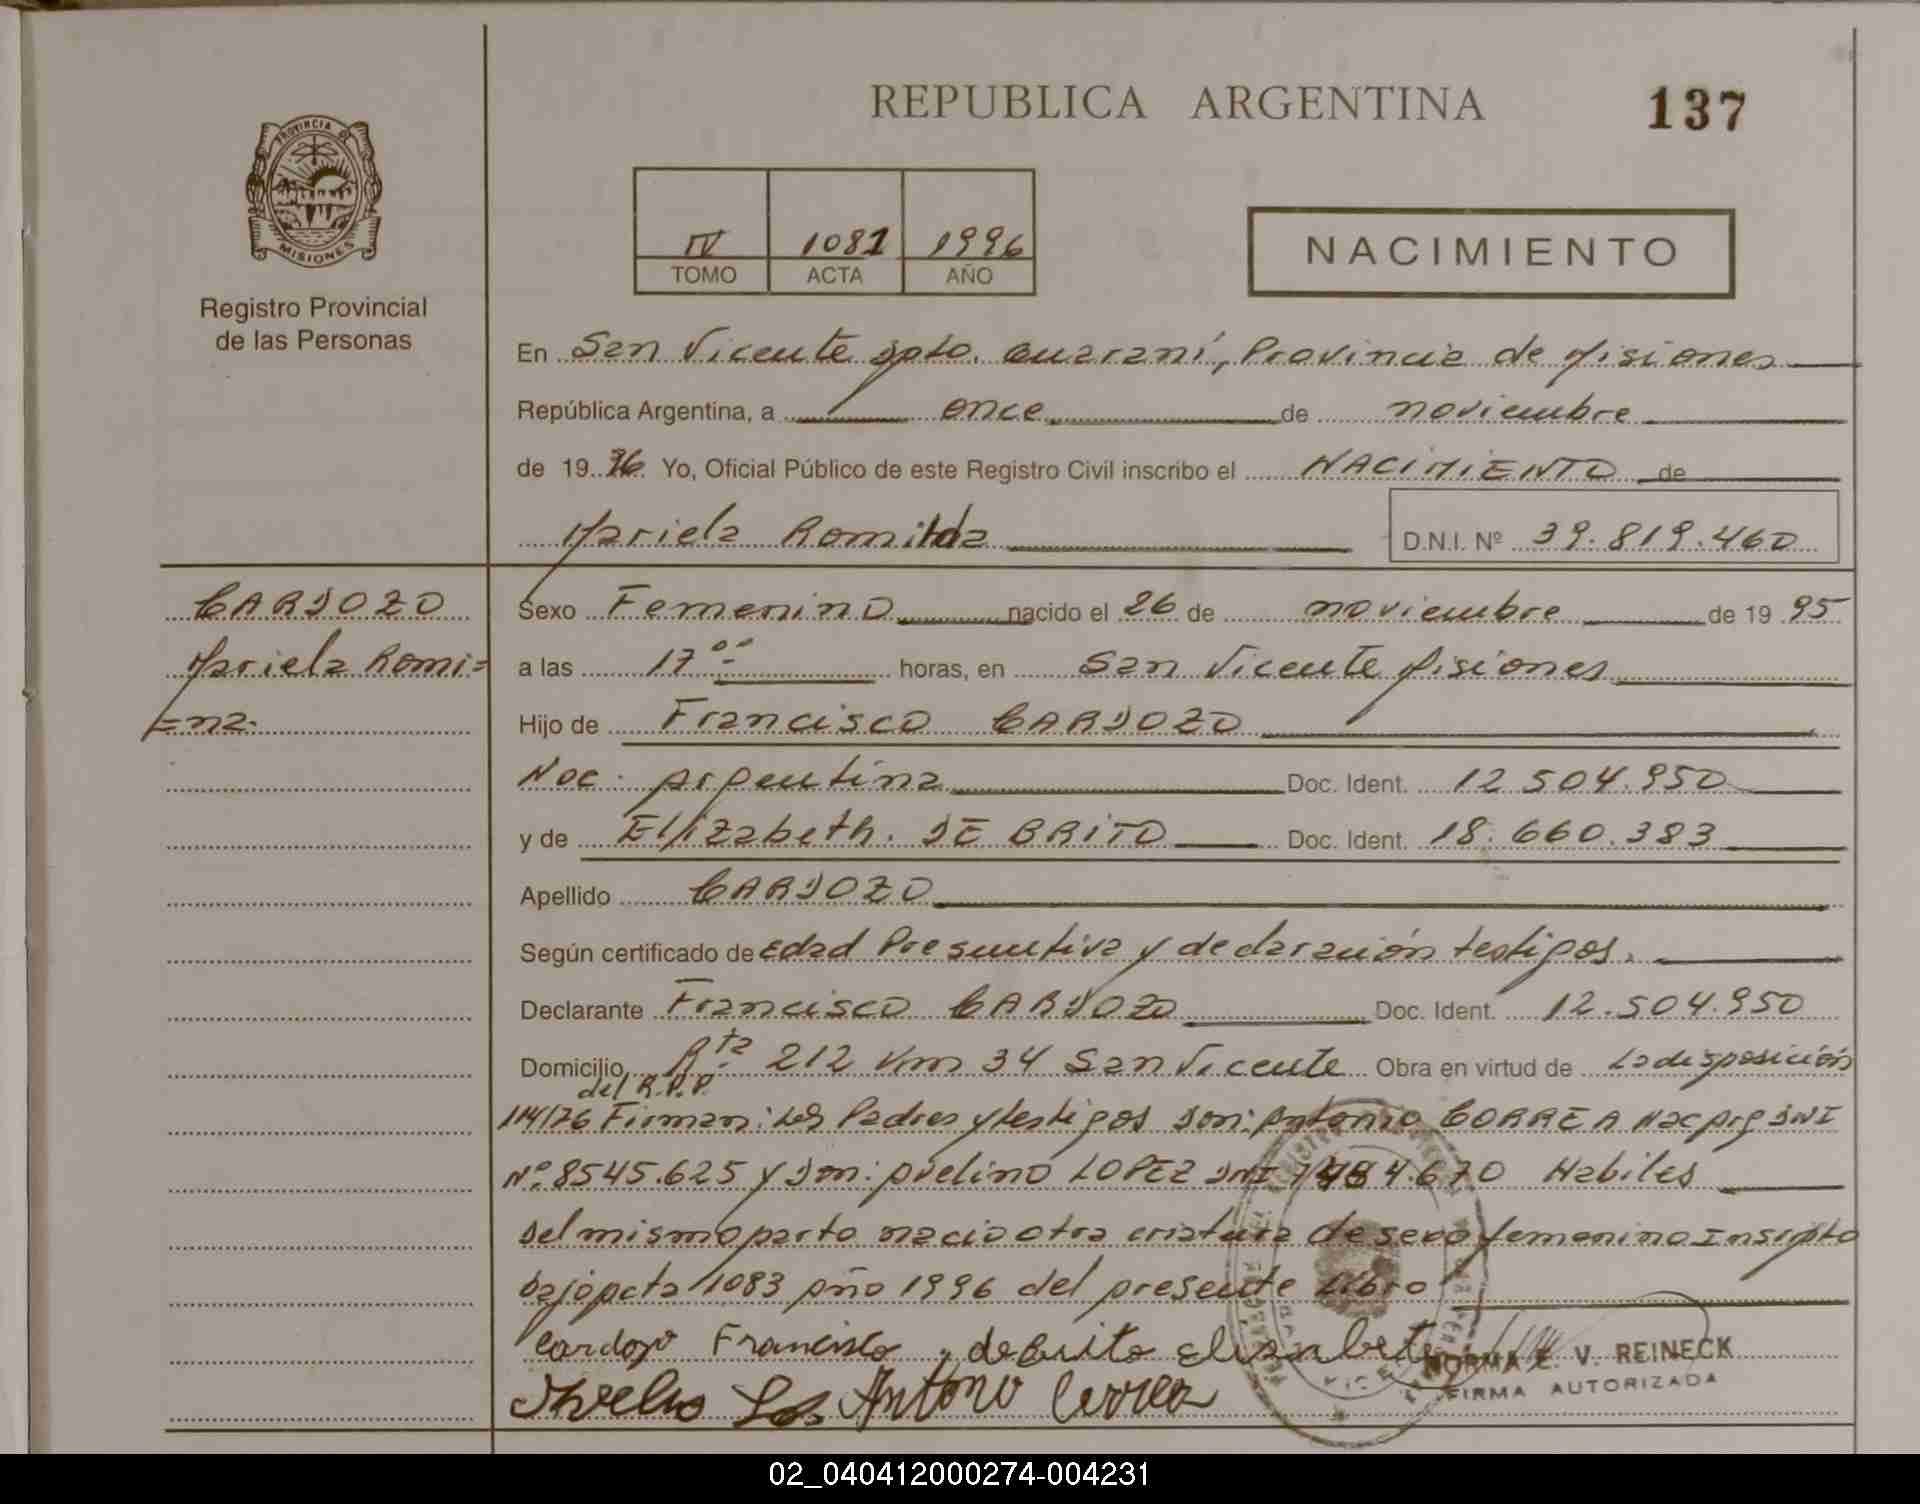 REPUBLICA ARGENTINA
137
PROVINCIA DE
MISIONES
Registro Provincial
de las Personas
IV 1081 1996
TOMO ACTA AÑO
NACIMIENTO
En San Vicente Dpto. Guaraní, Provincia de Misiones
República Argentina, a once de noviembre
de 1996 Yo, Oficial Público de este Registro Civil inscribo el NACIMIENTO de
Mariela Romilda
D.N.I. Nº 39.819.460
CARDOZO
Mariela Romi=
=na.
Sexo Femenino nacido el 26 de noviembre de 1995
a las 17 ºº horas, en San Vicente Misiones
Hijo de Francisco CARDOZO
Nac. Argentina Doc. Ident. 12.504.950
y de Elizabeth. DE BRITO Doc. Ident. 18.660.383
Apellido CARDOZO
Según certificado de Edad Presuntiva y declaración testigos.
Declarante Francisco CARDOZO Doc. Ident. 12.504.950
Domicilio Rta 212 Km 34 San Vicente Obra en virtud de La disposición
del R.P.P.
114/76 Firman: Los Padres y testigos Don: Antonio CORREA Nac Arg DNI
Nº 8545.625 y Don: Avelino LOPEZ DNI 4.670 Habiles
Del mismo parto nacio otra criatura de sexo femenino Inscripto
bajo Acta 1083 Año 1996 del presente Libro
Cardozo Francisco debrito Elisabete
Antonio Correa
NORMA E. V. REINECK
FIRMA AUTORIZADA
02_040412000274-004231